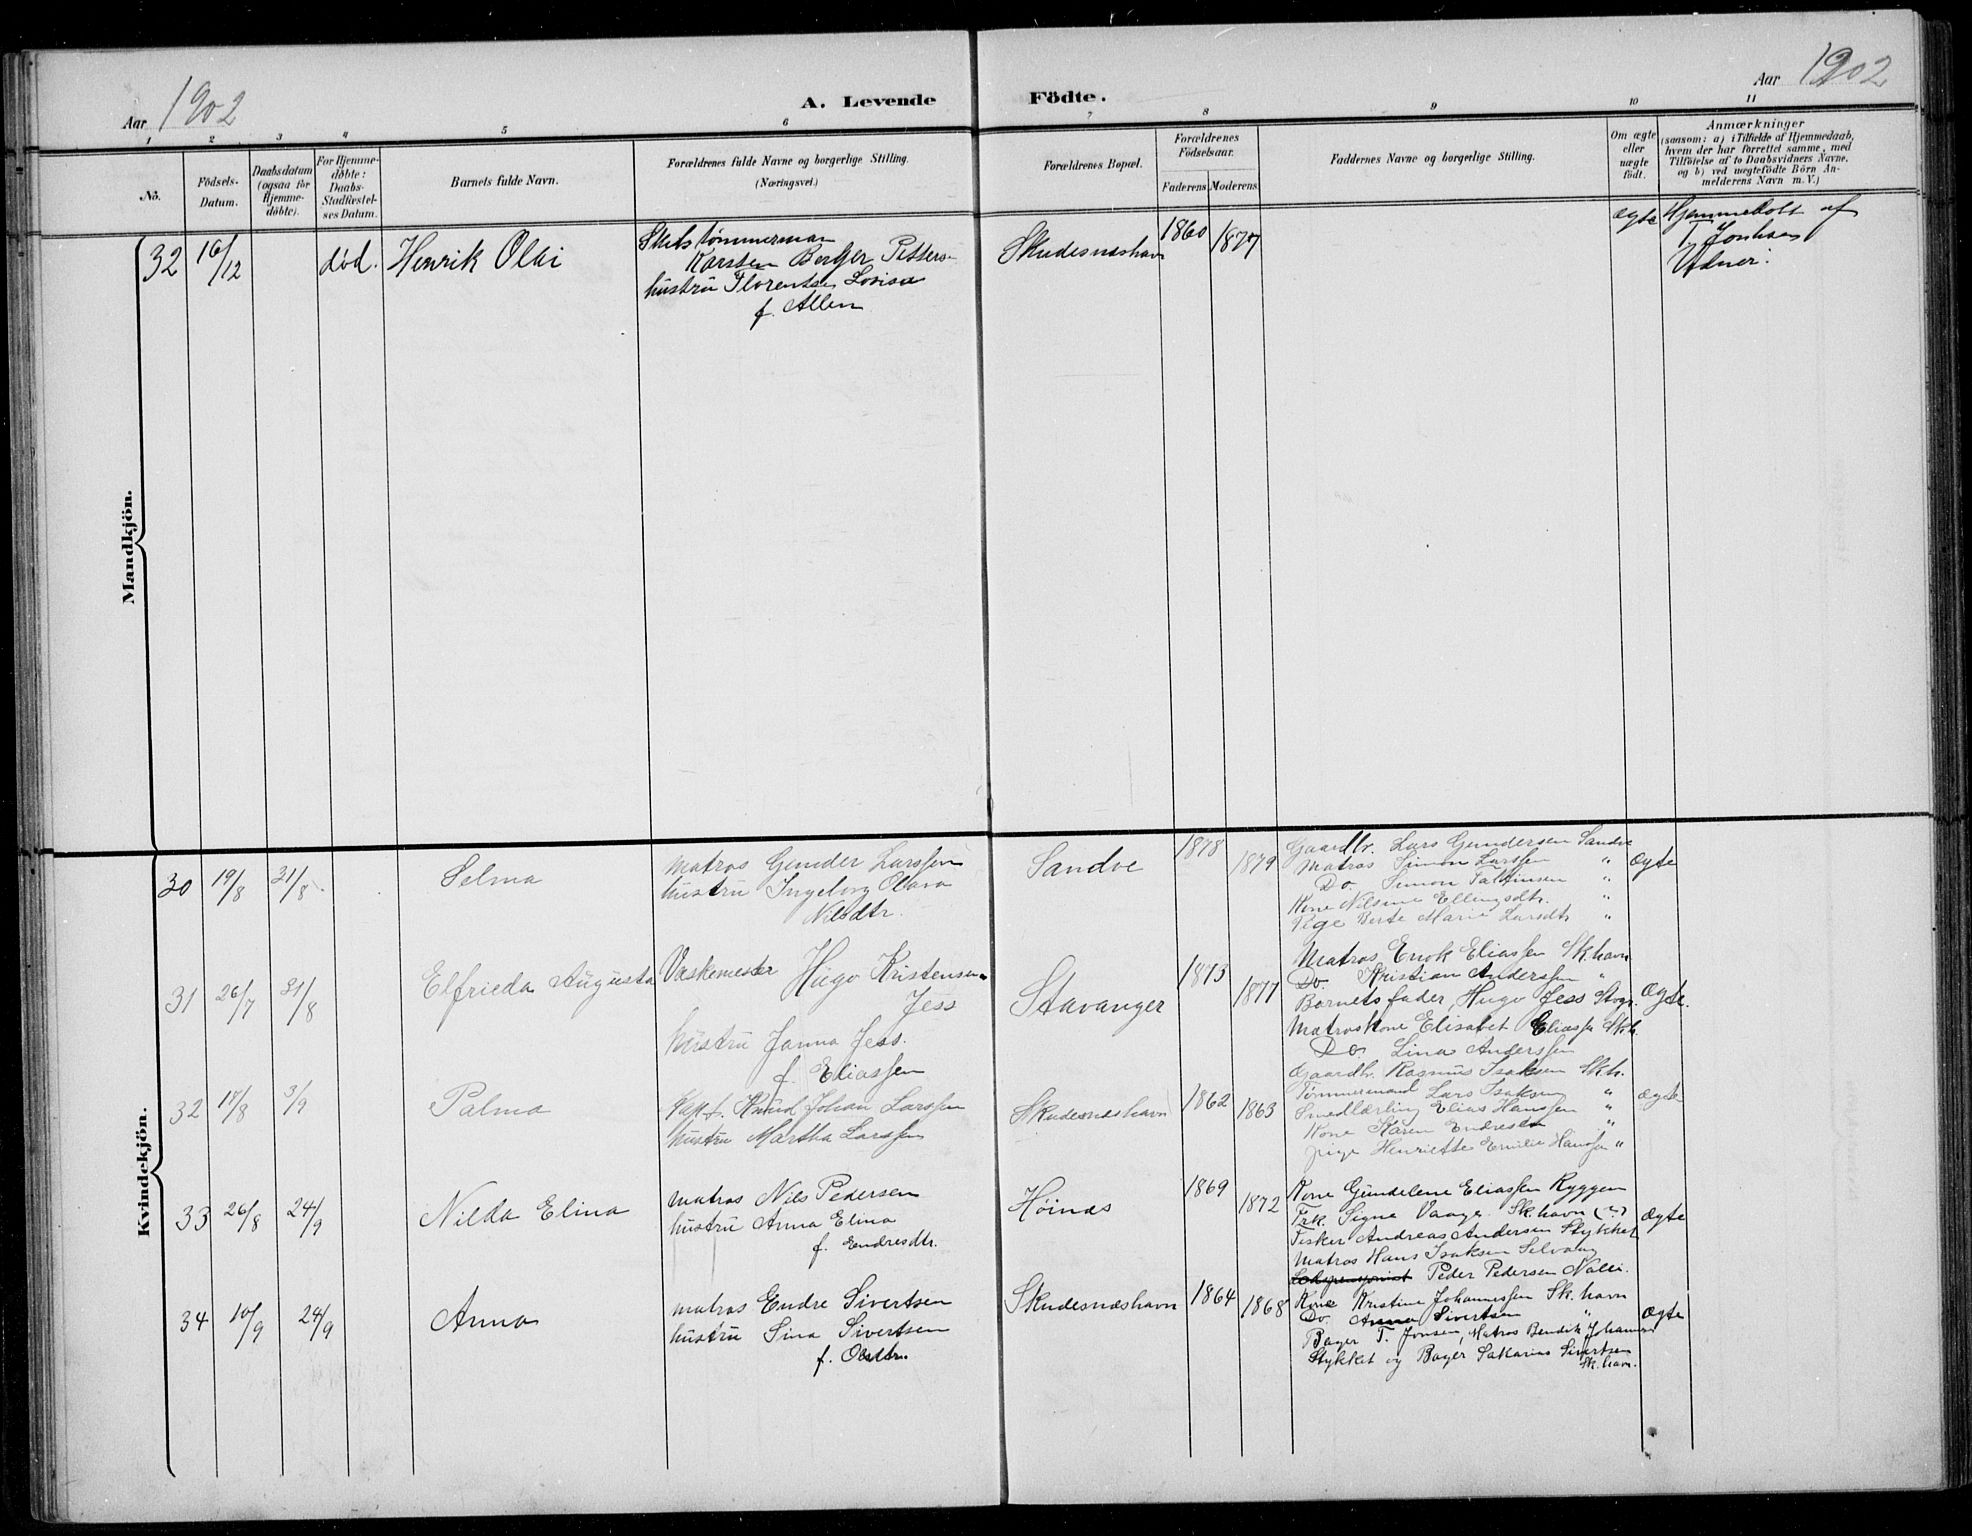 Aar 1902
A. Levende Födte.
Aar 1902
1 2 3 4 5 6 7 8 9 10 11
No.
Födsels-Datum.
Daabsdatum (ogsaa för Hjemme-döbte).
For Hjemme-döbte: Daabs-Stadfæstel-ses Datum.
Barnets fulde Navn.
Forældrenes fulde Navne og borgerlige Stilling. (Næringsvei.)
Forældrenes Bopæl.
Forældrenes Födselsaar.
Faderens Moderens
Faddernes Navne og borgerlige Stilling.
Om ægte eller uægte födt.
Anmærkninger
(saasom: a) i Tilfælde af Hjemmedaab,
hvem der har forrettet samme, med
Tilföielse af to Daabsvidners Navne,
og b) ved uægtefödte Börn An-
melderens Navn m. V.)
Mandkjön.
32 16/12 död. Henrik Olai
Skibstømmerman
Karsten Berger Petters-
hustru Florentse Lovisa
f. Allen
Skudesnæshavn 1860 1877
ægte Hjemmedöbt af
T. Jonhas
Vidner:
Kvindekjön.
30 19/8 31/8 Selma
Matros Gunder Larssen
hustru Ingeborg Olava
Nilsdtr.
Sandve 1878 1879
Gaardbr. Lars Gundersen Sandve
Matros Simon Larssen "
Do. Simon "
Kone Nilsine Ellingsdtr. "
Pige Berte Marie Larsdtr "
ægte
31 26/7 31/8 Elfrieda Augusta
Vaskemester Hugo Kristensen
Jess
hustru Janna Jess.
f. Eliassen
Stavanger 1873 1877
Matros Enok Eliassen Sk.havn
Do. Kristian Anderssen "
Barnets fader, Hugo Jess Stvgr.
Matroskone Elisabet Eliassen Skh.
Do. Lina Anderssen
ægte.
32 18/8 3/9 Palma
Kapt. Knud Johan Larssen
hustru Martha Larssen
Skudesnæshavn 1862 1863
Gaardbr. Rasmus Isaksen Skh.
Tømmermand Lars Isaksen "
Smedlærling Elias Hanssen "
Kone Karen Endresen "
pige Henriette Emilie Hanssen "
ægte
33 26/8 24/9 Nilda Elina
Matros Nils Pedersen
hustru Anna Elina
f. Endresdtr.
Høinæs 1869 1872
Kone Gundelene Eliassen Ryggen
Frk. Signe Vaage Sk.havn (?)
Fisker Andreas Andersen Stykket
Matros Hans Isaksen Selvaag
Peder Pedersen
ægte
34 10/9 24/9 Anna
Matros Endre Sivertsen
hustru Sina Sivertsen
f. Olsdtr.
Skudesnæshavn 1864 1868
Kone Kristine Johannessen Sk.havn
Do. Anna Sivertsen "
Bager T. Jonsen, Matros Bendik Johannes
Stykket og Bager Sakarias Sivertsen
Sk.havn.
ægte